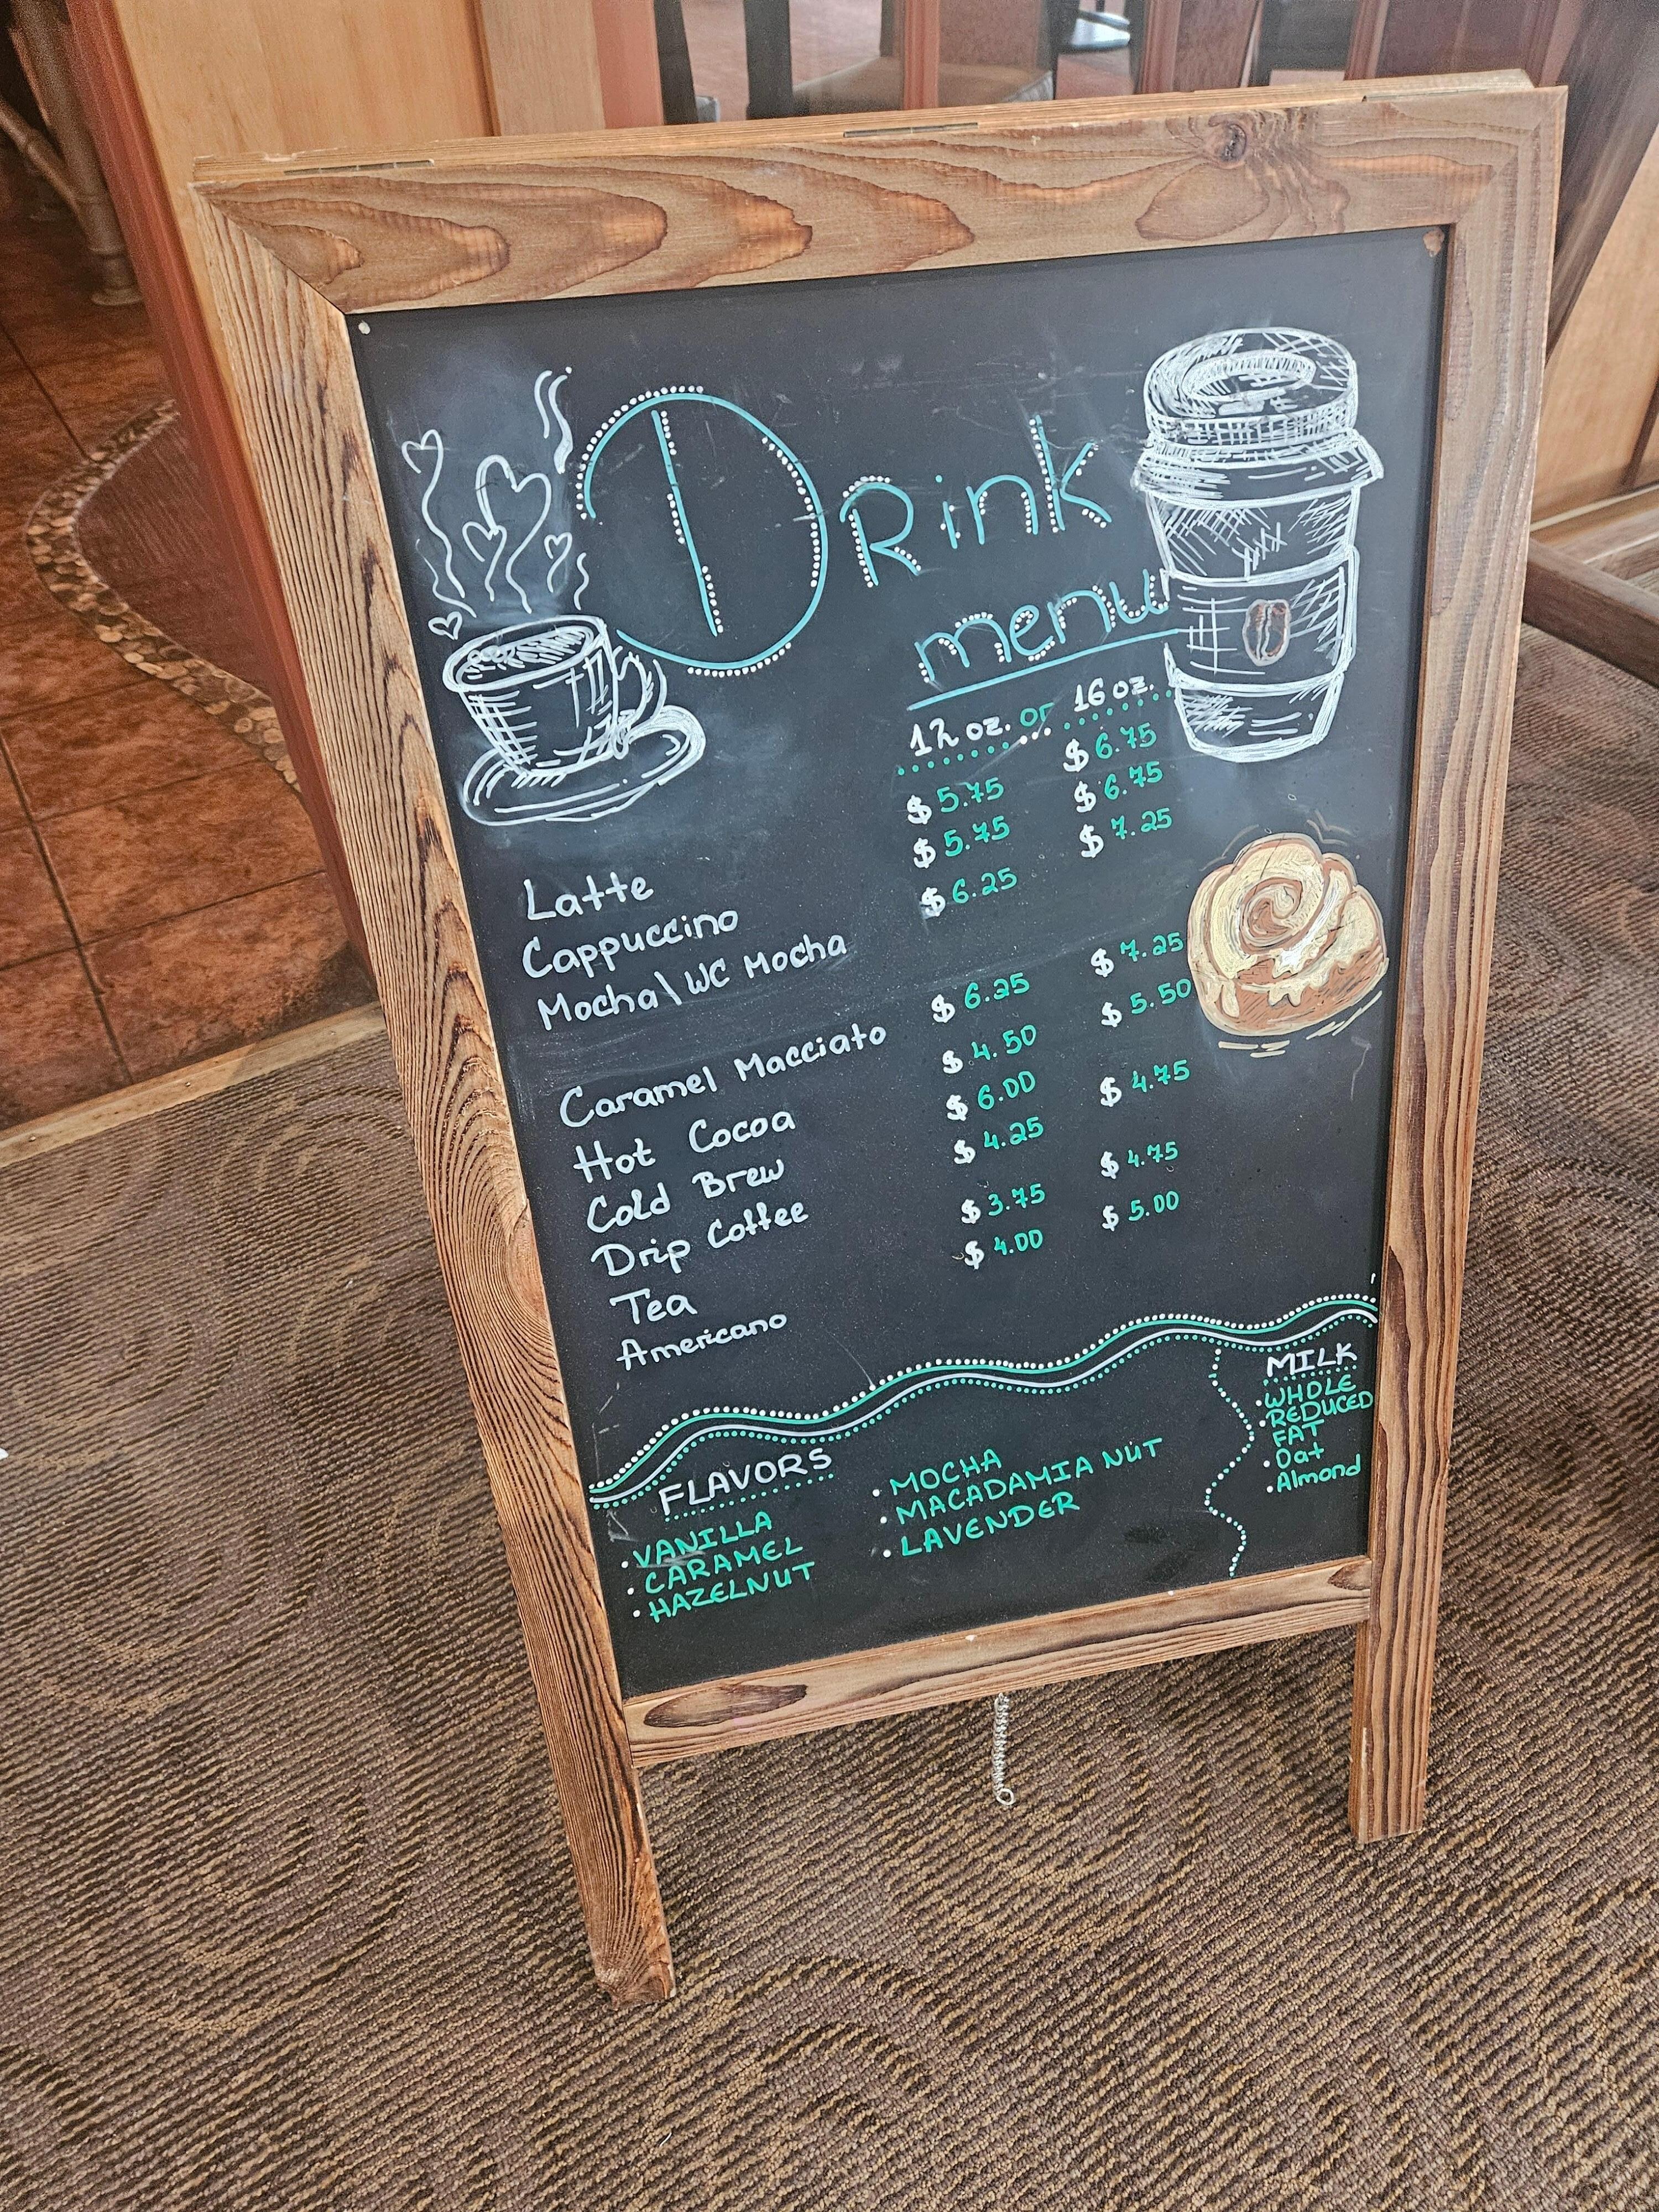 Drink
menu
12 oz. or 16 oz.
Latte $5.75 $6.75
Cappuccino $5.75 $6.75
Mocha\WC Mocha $6.25 $7.25
Caramel Macciato $6.25 $7.25
Hot Cocoa $4.50 $5.50
Cold Brew $6.00
Drip Coffee $4.25 $4.75
Tea $3.75 $4.75
Americano $4.00 $5.00
FLAVORS
• VANILLA
• CARAMEL
• HAZELNUT
• MOCHA
• MACADAMIA NUT
• LAVENDER
MILK
• WHOLE
• REDUCED
FAT
• Oat
• Almond